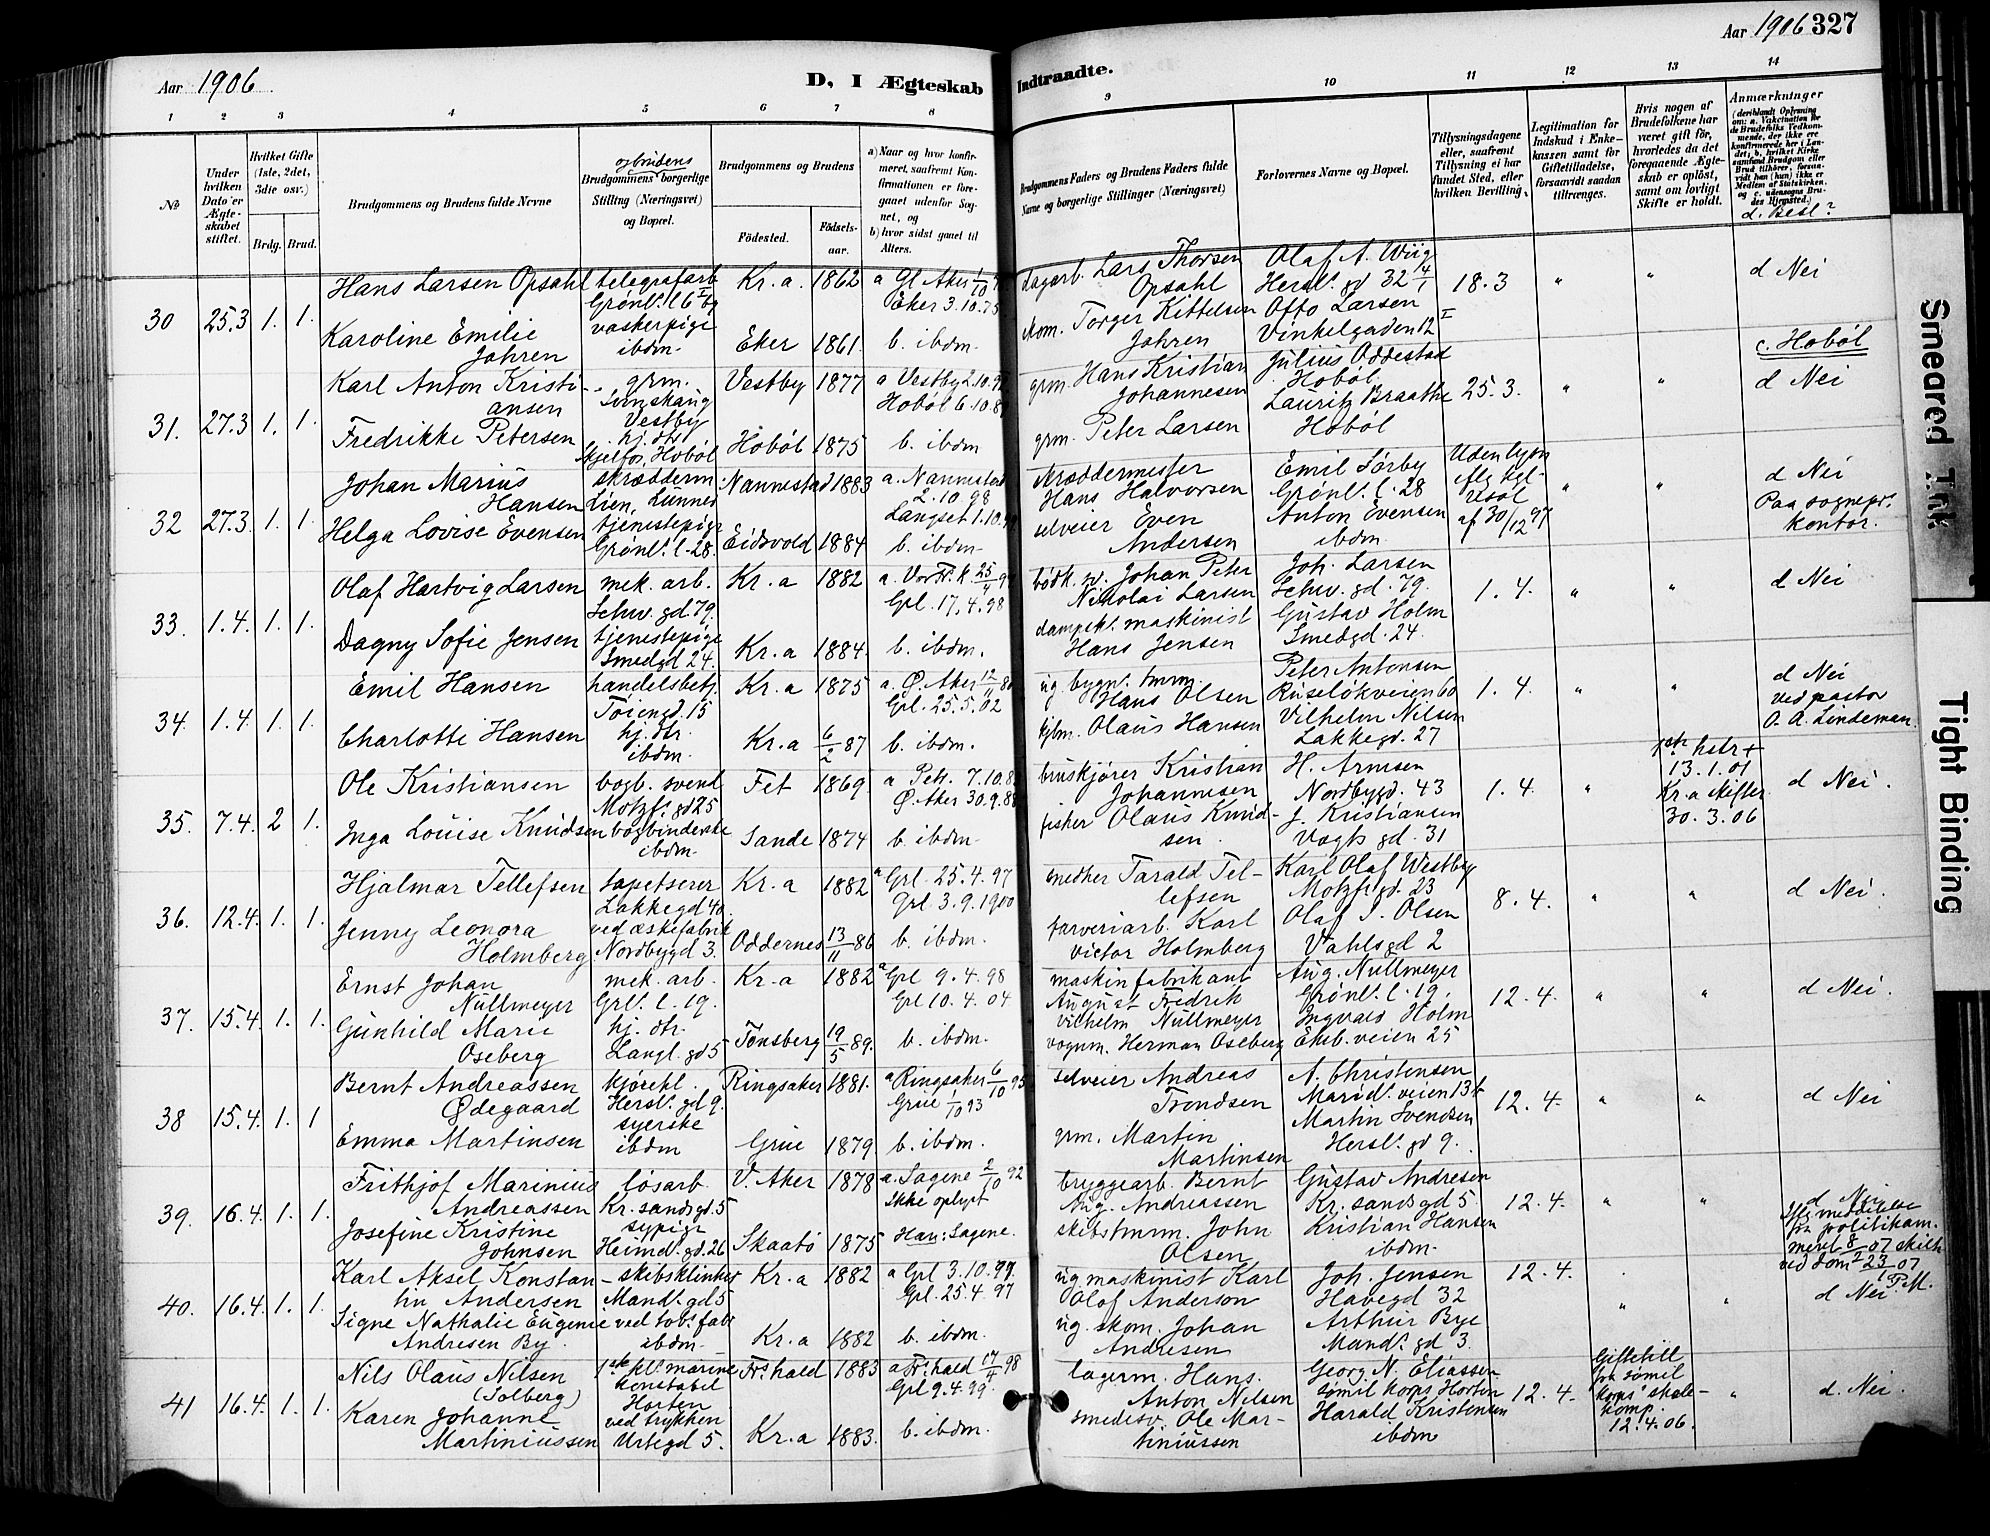 Aar 1906
D, I Ægteskab
Indtraadte.
Aar 1906 327
1 2 3 4 5 6 7 8 9 10 11 12 13 14
No
Under hvilken Dato er Ægteskabet stiftet.
Hvilket Gifte (1ste, 2det, 3die osv.)
Brdg. Brud.
Brudgommens og Brudens fulde Nævne
og brudens
Brudgommens borgerlige Stilling (Næringsvei) og Bopæl.
Brudgommens og Brudens
Fødested.
Fødselsaar.
a) Naar og hvor konfirmeret, saafremt Konfirmationen er foregaaet udenfor Sognet, og
b) hvor sidst gaaet til Alters.
Brudgommens Faders og Brudens Faders fulde Navne og borgerlige Stillinger (Næringsvei)
Forlovernes Navne og Bopæl.
Tillysningsdagene eller, saafremt Tillysning ei har fundet Sted, efter hvilken Bevilling.
Legitimation for Indskud i Enkekassen samt for Giftetilladelse, forsaavidt saadan tiltrænges.
Hvis nogen af Brudefolkene har været gift før, hvorledes da det foregaaende Ægteskab er opløst, samt om lovligt Skifte er holdt.
Anmærkninger
d. Besl?
30 25.3 1. 1.
Hans Larsen Opsahl
telegrafarb
Grønl. l 6
Kr.a. 1862
a Gl. Aker
dagarb. Lars Thorsen
Opsahl
Olaf A. Wiig
Hersl. gd 32
18.3 " "
d Nei
Karoline Emilie
Johren
vaskerpige
ibdm.
Eker 1861.
Eker 3.10.75
b. ibdm.
skom. Torger Kittelsen
Johren
Otto Larsen
Vinkelgaden 12 I
31. 27.3 1. 1.
Karl Anton Kristi-
ansen
grm.
Vestby
Vestby 1877
a Vestby 2.10.92
grm. Hans Kristian
Johannesen
Julius Oddestad
Hobøl
25.3. " "
c. Hobøl
d Nei
Fredrikke Petersen
hj. dtr
Hobøl
Hobøl 1875
b. ibdm
grm. Peter Larsen
Lauritz Braathe
Hobøl
32 27.3. 1. 1.
Johan Marius
Hansen
skrædderm
Lien, Lunner
Nannestad 1883
a. Nannestad
2.10.98
skræddermester
Hans Halvorsen
Emil Sørby
Grønl. l. 28
Uden lysn
iflg kgl.
Resol
af 30/12 97
" "
d Nei
Paa sognepr.
kontor.
Helga Lovise Evensen
tjenestepige
Grønl. l. 28.
Eidsvold 1884
Langset 1.10.
b. ibdm.
selveier Even
Andersen
Anton Evensen
ibdm.
33. 1.4. 1. 1.
Olaf Hartvig Larsen
mek. arb.
Schw. gd 79.
Kr.a 1882
a. Vor Fr. k. 25/4 97
Grl. 17.4.98
bødk. sv. Johan Peter
Nikolai Larsen
Joh. Larsen
Schw. gd. 79.
1.4. " "
d Nei
Dagny Sofie Jensen
tjenestepige
Smedgd 24.
Kr.a 1884.
b. ibdm.
dampsk. maskinist
Hans Jensen
Gustav Holm
Smedgd. 24.
34. 1.4. 1. 1.
Emil Hansen
handelsbetj.
Tøiengd. 15
Kr.a 1875
a. Ø. Aker
Grl. 25.5.02
ug. bygn. tmm.
Hans Olsen
Peter Antonsen
Ruseløkveien 60
1.4. " "
d Nei
ved pastor
O. A. Lindeman.
Charlotte Hansen
hj. dtr.
ibdm.
Kr.a 6/2 87
b. ibdm.
kjbm. Olaus Hansen
Vilhelm Nilsen
Lakkegd. 27
35. 7.4. 2 1.
Ole Kristiansen
bogb. svend
Motzf. gd 25
Fet 1869.
a Petr. 7.10.8
Ø. Aker 30.9.88
bruskjører Kristian
Johannesen
H. Arnesen
Nordbygd. 43
1.4. "
1ste hstr +
13.1.01
Kr.a skifter.
30.3.06
d Nei.
Inga Louise Knudsen
bogbinderske
ibdm.
Sande 1874
b. ibdm.
fisker Olaus Knud-
sen.
J. Kristiansen
Vogts gd. 31
36. 12.4. 1. 1.
Hjalmar Tellefsen
tapetserer
Lakkegd 40.
Kr.a 1882
a Grl. 25.4.97
Grl. 3.9.1900
smedker Tarald Tel-
lefsen
Karl Olaf Westby
Motzf. gd. 23
8.4. " "
d Nei.
Jenny Leonora
Holmberg
ved æskefabrik
Nordbygd 3.
Oddernes 13/11 86
b. ibdm.
farveriarb. Karl
victor Holmberg
Olaf J. Olsen
Vahlsgd 2
37. 15.4. 1. 1.
Ernst Johan
Nullmeyer
mek. arb.
Grl. l. 19.
Kr.a 1882
a Grl 9.4.98
Grl 10.4.04
maskinfabrikant
August Fredrik
vilhelm Nullmeyer
Aug. Nullmeyer
Grønl. l. 19.
12.4. " "
d Nei.
Gunhild Marie
Oseberg
hj. dtr.
Langl. gd 5
Tønsberg 19/5 89.
b. ibdm.
vognm. Herman Oseberg
Ingvald Holm
Ekb. veien 25
38 15.4. 1. 1
Bernt Andreassen
Ødegaard
kjørekl.
Hersl. gd 9.
Ringsaker 1881.
a Ringsaker 6/10 95
Grue 1/10 93
selveier Andreas
Trondsen
A. Christensen
Marid. veien 13
12.4. " "
d Nei
Emma Martinsen
syerske
ibdm
Grue 1879
b. ibdm.
grm. Martin
Martinsen
Martin Svendsen
Hersl. gd 9.
39. 16.4. 1. 1.
Frithjof Marinius
Andreassen
løsarb.
Kr. sands gd. 5
V. Aker 1878
a. Sagene 2/10 92
Ikke oplyst
bryggearb. Bernt
Aug. Andreassen
Gustav Andresen
Kr. sands gd 5
12.4. " "
d Nei
Iflg meddelelse
fra politikam.
Josefine Kristine
Johnsen
sypige
Heimd. gd. 26
Skaatø 1875
Han: Sagene.
skibstmm. John
Olsen
Kristian Hansen
ibdm.
40. 16.4. 1. 1.
Karl Aksel Konstan-
tin Andersen
skibsklinker
Mandl. gd 5
Kr.a 1882
a Grl 3.10.97.
Grl. 25.4.97
ug. maskinist Karl
Olof Anderson
Joh. Jensen
Havegd 32
12.4. " "
d Nei
Signe Nathalie Eugenie
Andresen By.
ved tob. fabr
ibdm.
Kr.a 1882
b. ibdm.
ug. skom. Johan
Andresen
Arthur Bye
Mandl. gd 3.
41 16.4. 1. 1.
Nils Olaus Nilsen
(Solberg)
1ste kl. marine
konstabel
Horten
Fr.hald 1883
a Fr.hald 17/4 98
Grl 9.4.99
lagerm. Hans
Anton Nilsen
Georg N. Eliassen
sømil korps Horten
12.4.
Giftetill
fra sømil
korps' skole-
komp.
12.4.06.
"
d. Nei.
Karen Johanne
Martiniussen
ved trykken
Urtegd 5.
Kr.a 1883.
b. ibdm.
smedesv. Ole Mar-
tiniussen
Harald Kristensen
ibdm
Smeared Ink
Tight Binding